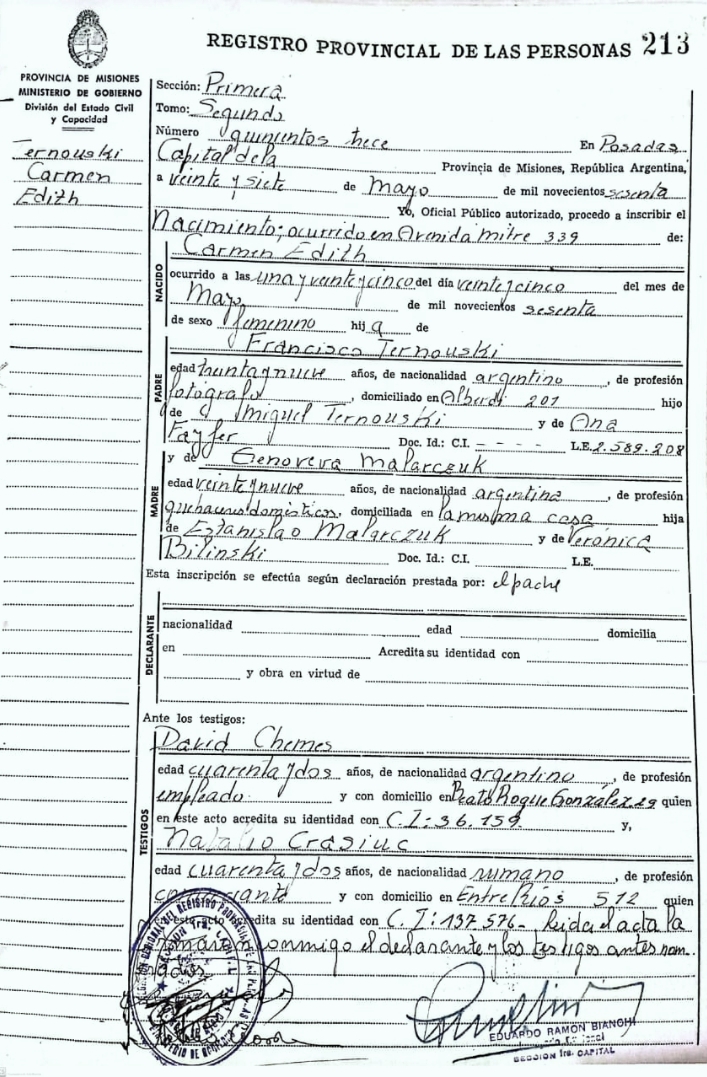 REGISTRO PROVINCIAL DE LAS PERSONAS 213
PROVINCIA DE MISIONES
MINISTERIO DE GOBIERNO
División del Estado Civil
y Capacidad
Ternouski
Carmen
Edith
Sección: Primera
Tomo: Segundo
Número quinientos trece En Posadas
Capital de la Provincia de Misiones, República Argentina,
a veinte y siete de Mayo de mil novecientos sesenta
Yo, Oficial Público autorizado, procedo a inscribir el
Nacimiento; ocurrido en Avenida Mitre 339 de:
NACIDO
Carmen Edith
ocurrido a las una y veinte y cinco del día veinte y cinco del mes de
Mayo de mil novecientos sesenta
de sexo femenino hija de
PADRE
Francisco Ternouski
edad treinta y nueve años, de nacionalidad argentino, de profesión
fotógrafo, domiciliado en Alberdi 201 hijo
de Miguel Ternouski y de Ana
Fayfer Doc. Id.: C.I. - - - - L.E. 2.589.208
MADRE
y de Genoveva Malarczuk
edad veinte y nueve años, de nacionalidad argentina, de profesión
quehaceres domésticos, domiciliada en la misma casa hija
de Estanislao Malarczuk y de Verónica
Bilinski Doc. Id.: C.I. L.E.
Esta inscripción se efectúa según declaración prestada por: el padre
DECLARANTE
nacionalidad edad domicilia
en Acredita su identidad con
y obra en virtud de
Ante los testigos:
TESTIGOS
David Chemes
edad cuarenta y dos años, de nacionalidad argentino, de profesión
empleado y con domicilio en Beato Roque González 29 quien
en este acto acredita su identidad con C.I: 36.159. y,
Natalio Crasiuc
edad cuarenta y dos años, de nacionalidad rumano, de profesión
y con domicilio en Entre Ríos 512 quien
en este acto acredita su identidad con C.I: 137.576- Leida el acta la
conmigo el declarante y los testigos antes nom
brados
EDUARDO RAMON BIANCHI
SECCION 1ra. CAPITAL